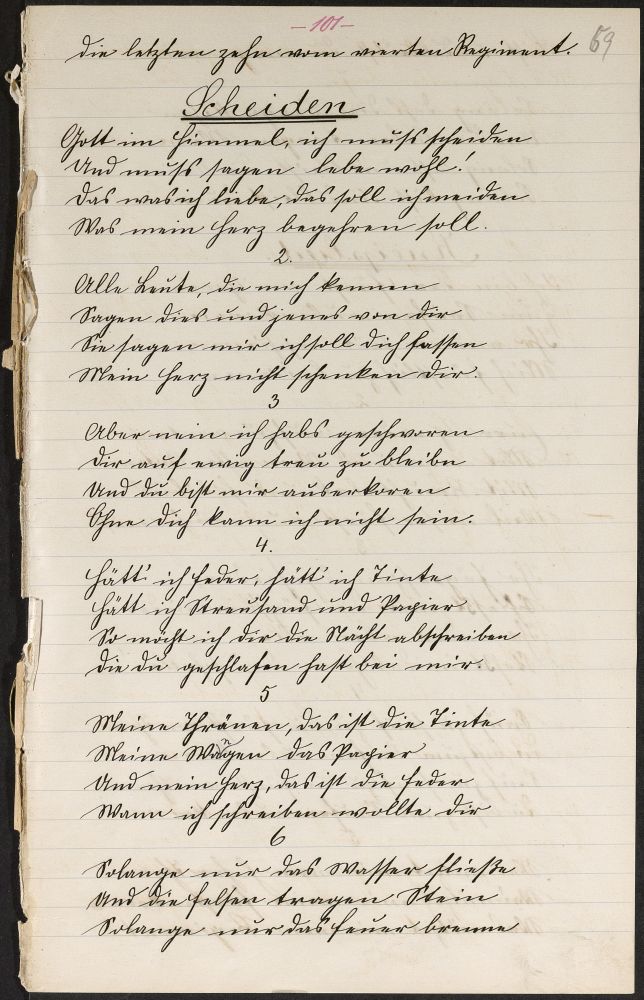 -101-
59
die letzten zehn vom vierten Regiment.
Scheiden
Gott im Himmel, ich muss scheiden
Und muss sagen lebe wohl!
Das was ich liebe, das soll ich meiden
Was mein Herz begehren soll.
2.
Alle Leute, die mich kennen
Sagen dies und jenes von dir
Sie sagen mir ich soll dich hassen
Mein Herz nicht schenken dir.
3
Aber nein ich habs geschworen
Dir auf ewig treu zu bleibn
Und du bist mir auserkoren
Ohne dich kann ich nicht sein.
4.
Hätt' ich Feder, hätt' ich Tinte
Hätt ich Streusand und Papier
So möcht ich dir die Nächt abschreiben
Die du geschlafen hast bei mir.
5
Meine Thränen, das ist die Tinte
Meine Wagen das Papier
Und mein Herz, das ist die Feder
Wann ich schreiben wollte dir
6
Solange nur das Wasser fließe
Und die Felsen tragen Stein
Solange nur das Feuer brenne